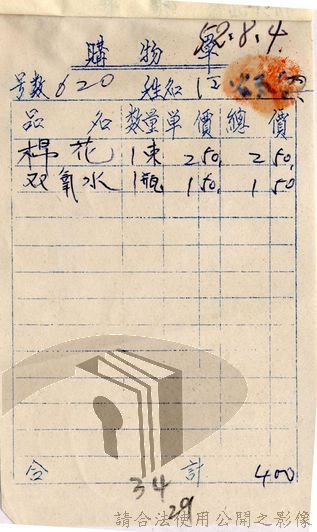 購物單 52.8.4
号数 620 姓名
品名 数量 单價 總價
棉花 1束 2 50. 2 50.
双氧水 1瓶 1 50. 1 50
合計 400
34
29
請合法使用公開之影像